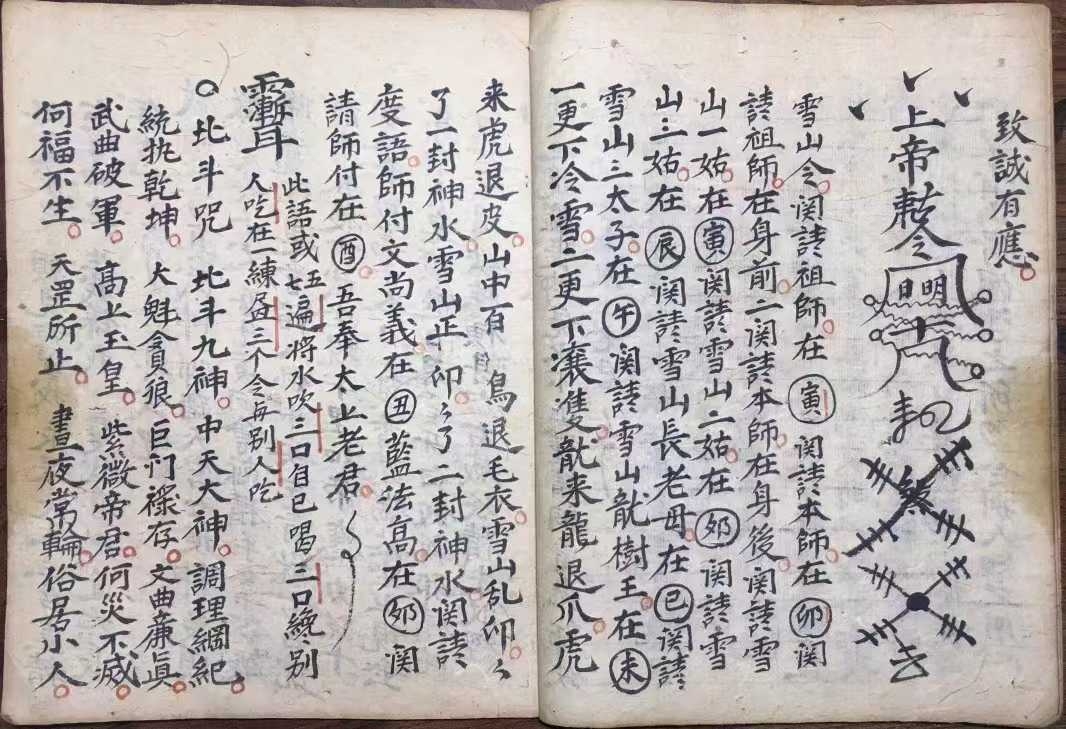 致誠有應。
上帝敕令
雪山令。関請祖師。在寅関請本師。在卯関
請祖師。在身前。二関請本師。在身後。関請雪
山一姑。在寅関請雪山二姑。在卯関請雪
山三姑。在辰関請雪山長老母。在巳関請
雪山三太子。在午関請雪山龍樹王。在未
一更下冷雪。二更下濃霜。龍来龍退爪。虎
来虎退皮。山中百鳥退毛衣。雪山乱卯。々
了一封神水。雪山正卯。々了二封神水。関請
度語。師付文尚義。在丑藍法高。在卯関
請師付在酉。吾奉太上老君。
此語或五七遍將水吹三口自已喝三口纔别
人吃在一練屋三个令再别人吃
○北斗咒 北斗九神。中天大神。調理綱紀。
統执乾坤。大魁貪狼。巨门祿存。文曲廉真。
武曲破軍。高上玉皇。紫微帝君。何災不滅。
何福不生。天罡所止。晝夜常輪。俗居小人。